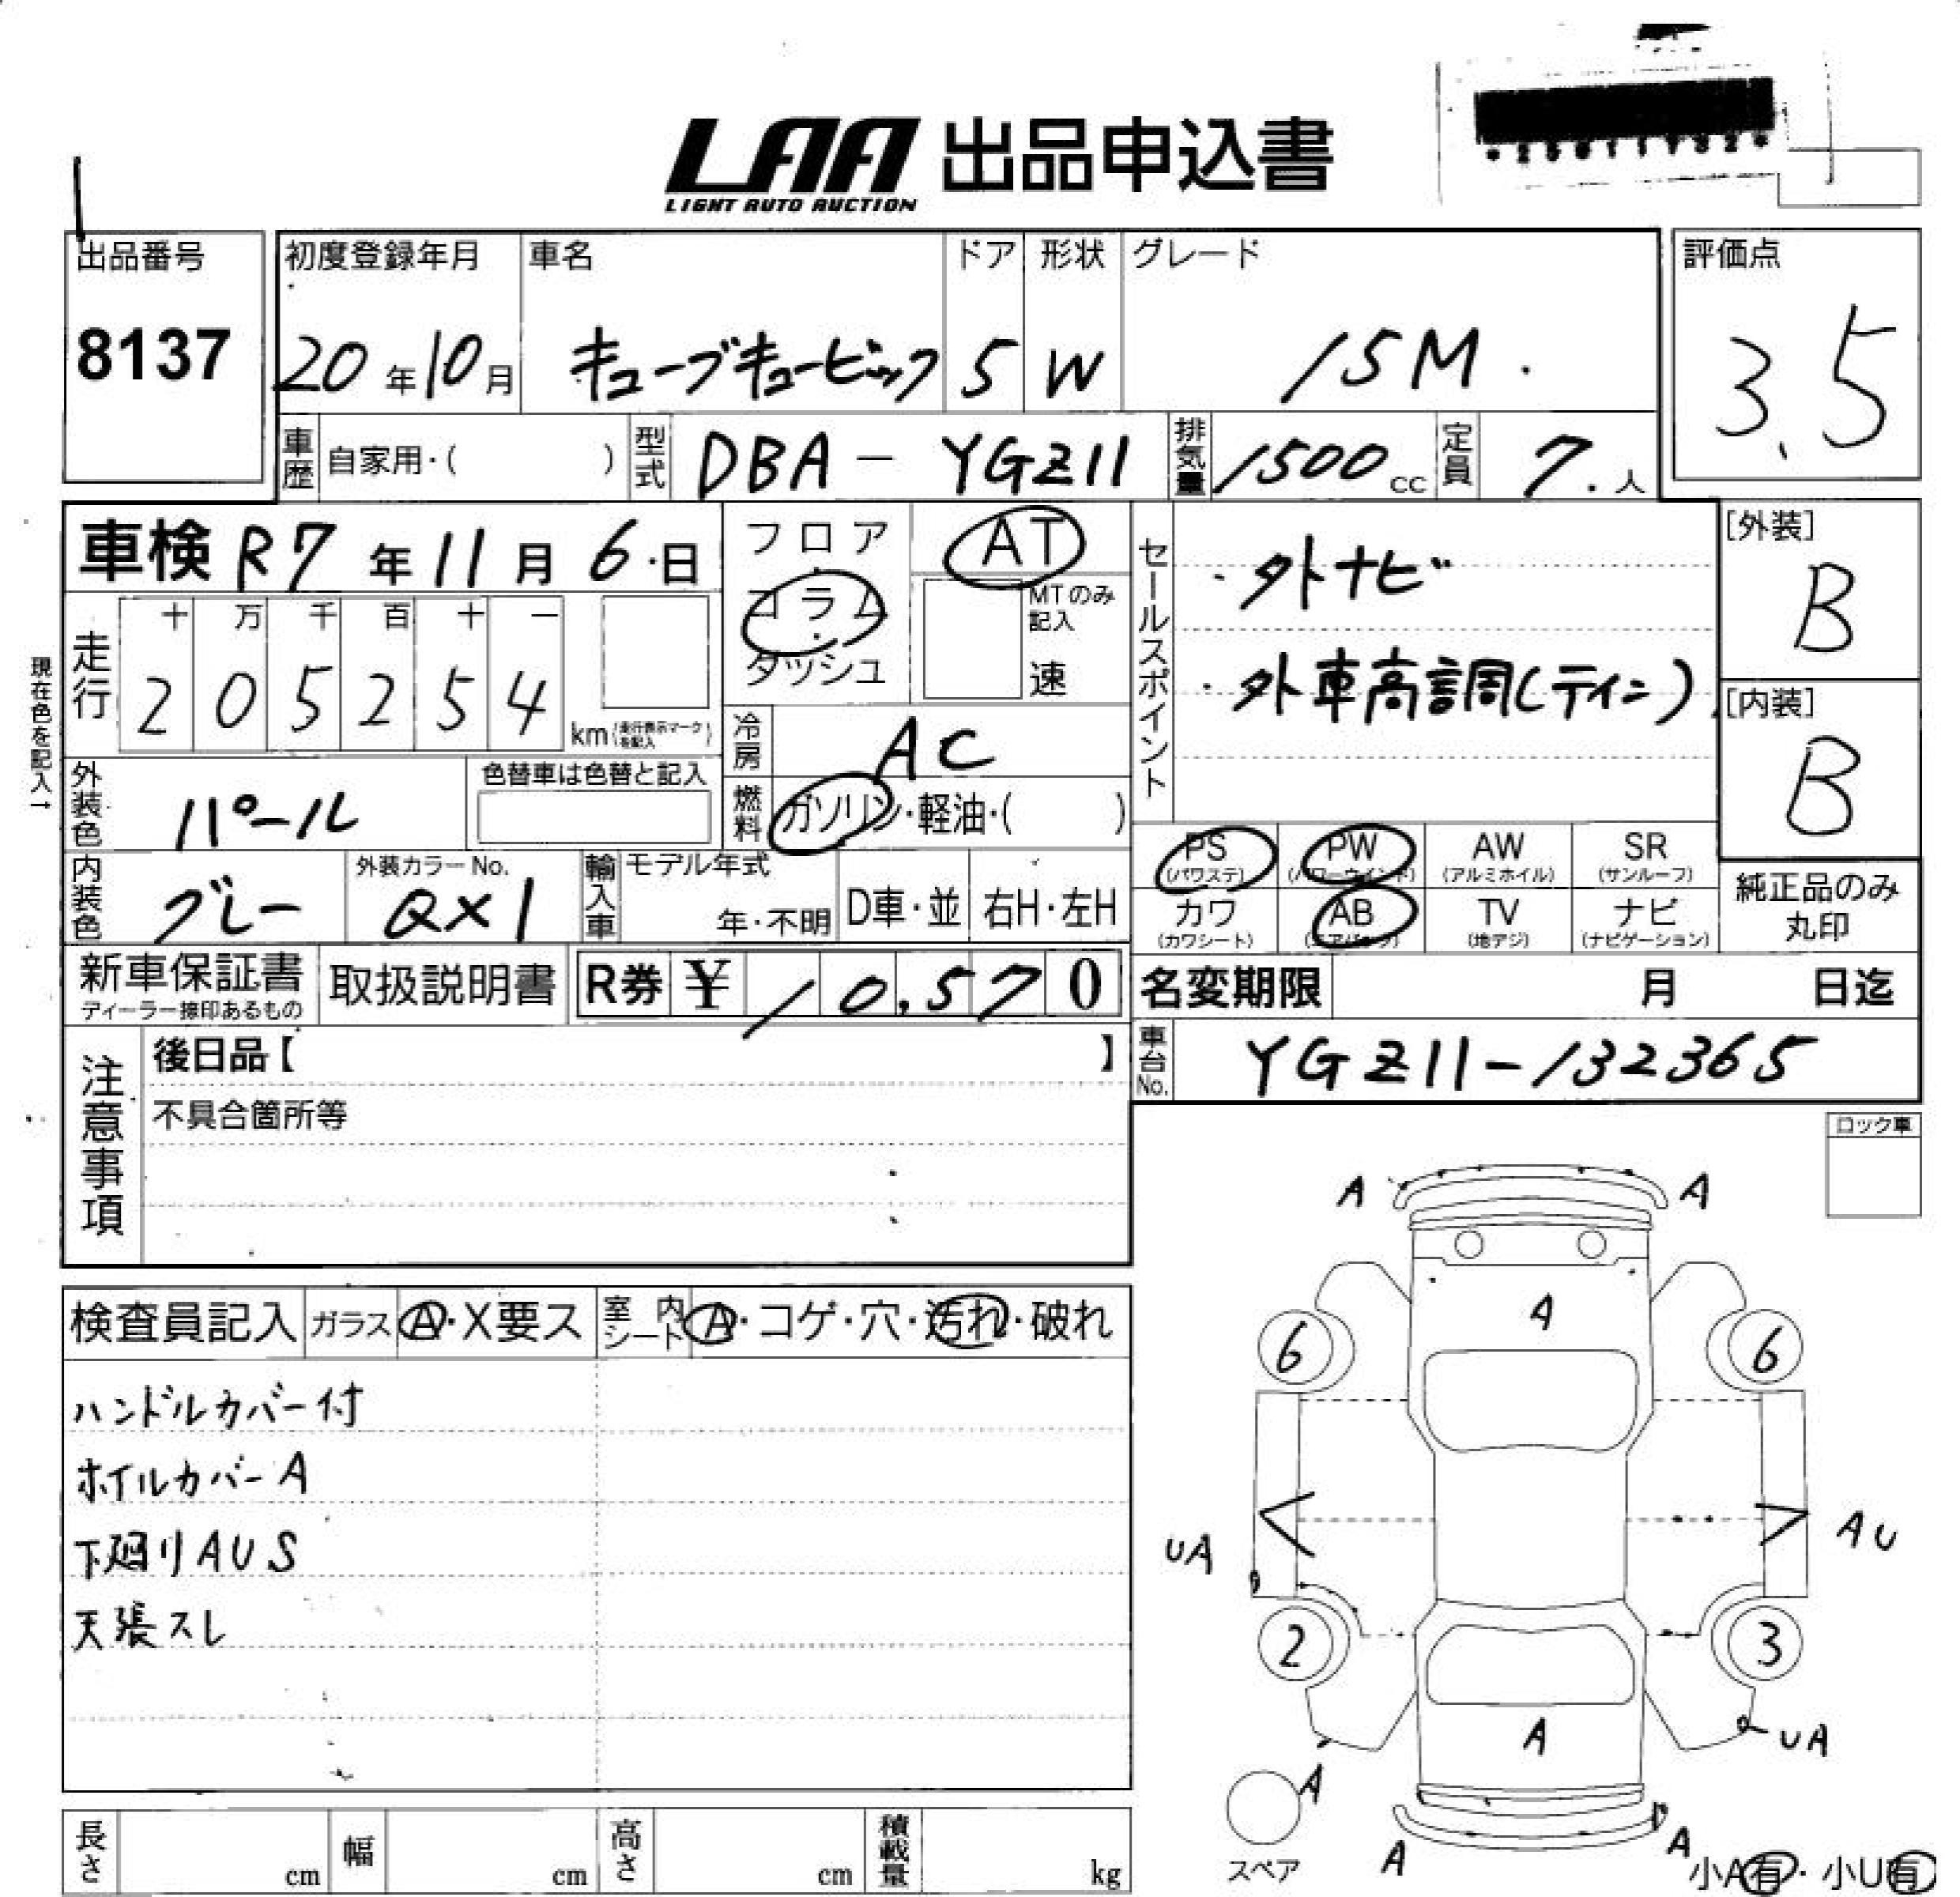 LAA 出品申込書
LIGHT AUTO AUCTION
出品番号
8137
初度登録年月
20年10月
車名
キューブキュービック
ドア
5
形状
W
グレード
15M
評価点
3.5
車歴 自家用・( )
型式 DBA-YGZ11
排気量 1500cc
定員 7人
車検 R7年11月6日
フロア・コラム・ダッシュ
AT
MTのみ記入
速
走行
十 万 千 百 十 一
2 0 5 2 5 4
km(走行表示マークを記入)
現在色を記入→
冷房 AC
外装色 パール
色替車は色替と記入
燃料 ガソリン・軽油・( )
内装色 グレー
外装カラーNo.
QX1
輸入車 モデル年式
年・不明
D車・並
右H・左H
新車保証書
ディーラー捺印あるもの
取扱説明書
R券 ¥ 10,570
セールスポイント
・外ナビ
・外車高調(テイン)
[外装]
B
[内装]
B
PS (パワステ)
PW (パワーウインド)
AW (アルミホイル)
SR (サンルーフ)
カワ (カワシート)
AB (エアバック)
TV (地デジ)
ナビ (ナビゲーション)
純正品のみ
丸印
名変期限 月 日迄
車台No. YGZ11-132365
注意事項
後日品【 】
不具合箇所等
ロック車
検査員記入 ガラス A・X要ス
室内シート A・コゲ・穴・汚れ・破れ
ハンドルカバー付
ホイルカバーA
下廻りAUS
天張スレ
A A
A
6 6
UA AU
2 3
A
UA
A
A A
スペア
小A有・小U有
長さ cm
幅 cm
高さ cm
積載量 kg